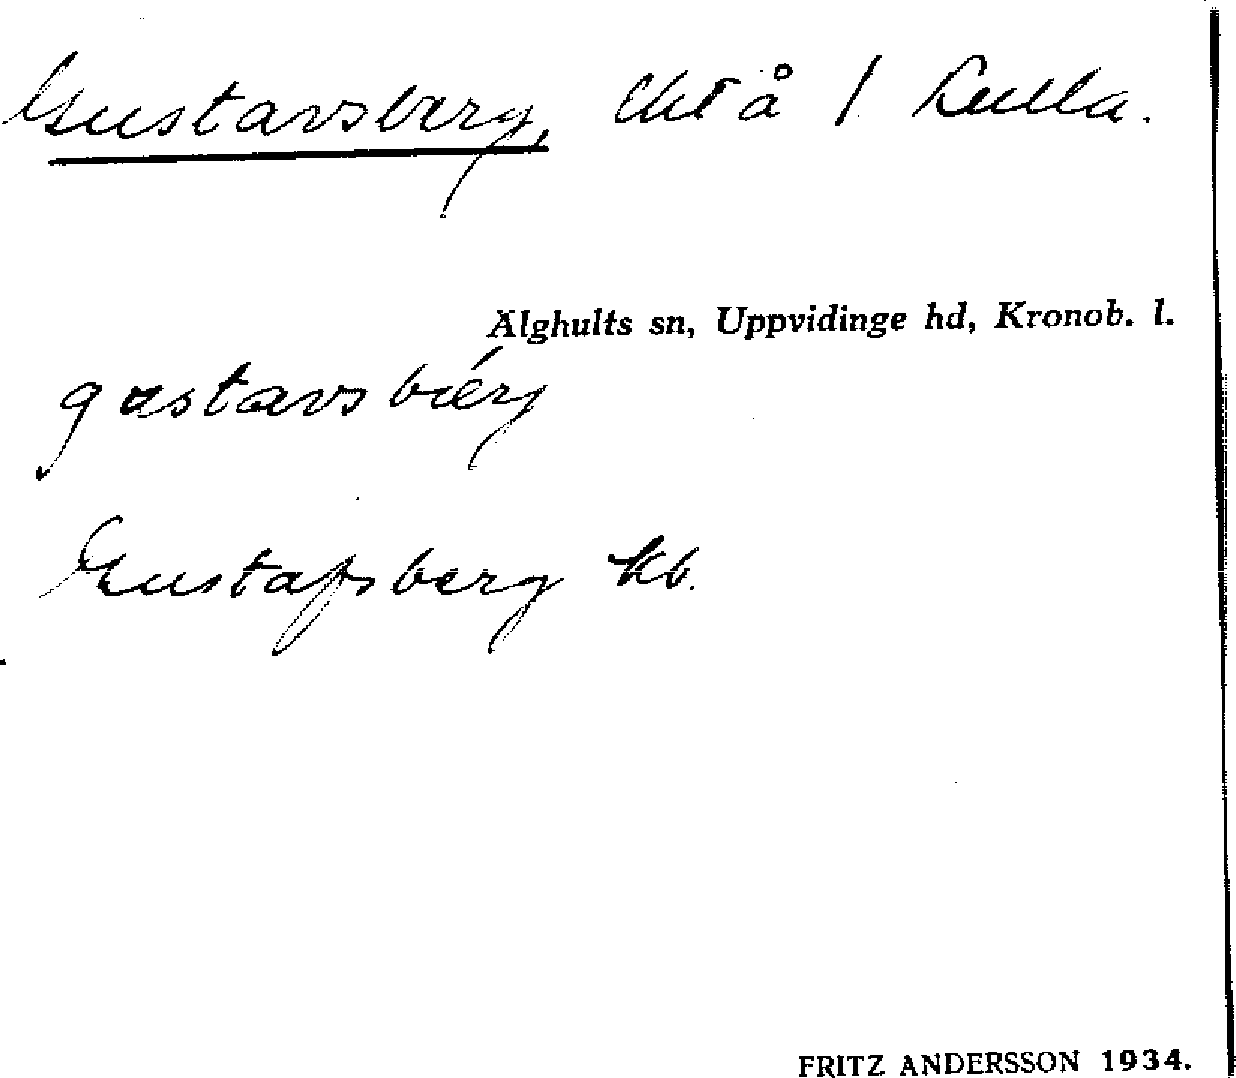 Gustavsberg, chT å 1 Kulla.
Älghults sn, Uppvidinge hd, Kronob. l.
gustavsbérg
Gustafsberg kb.
FRITZ ANDERSSON 1934.